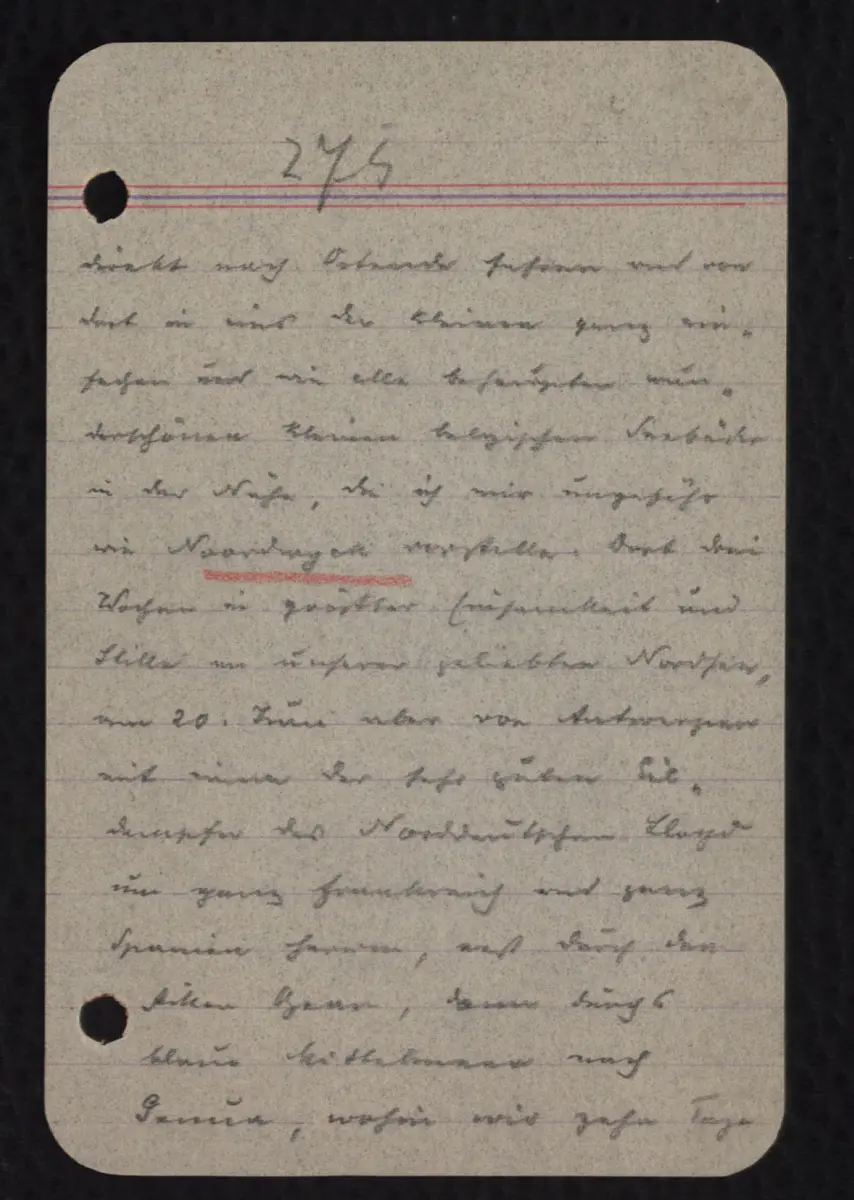 275
direkt nach Ostende fahren und von
dort in eins der kleinen ganz ein-
fachen und wie alle behaupten wun-
derschönen kleinen belgischen Seebäder
in der Nähe, die ich mir ungefähr
wie Noordwyck vorstelle. Dort drei
Wochen in größter Einsamkeit und
Stille an unserer geliebten Nordsee,
am 20. Juni aber von Antwerpen
mit einem der sehr guten Eil-
dampfer des Norddeutschen Lloyd
um ganz Frankreich und ganz
Spanien herum, erst durch den
Ozean, dann durchs
blaue Mittelmeer nach
Genua, wohin wir zehn Tage